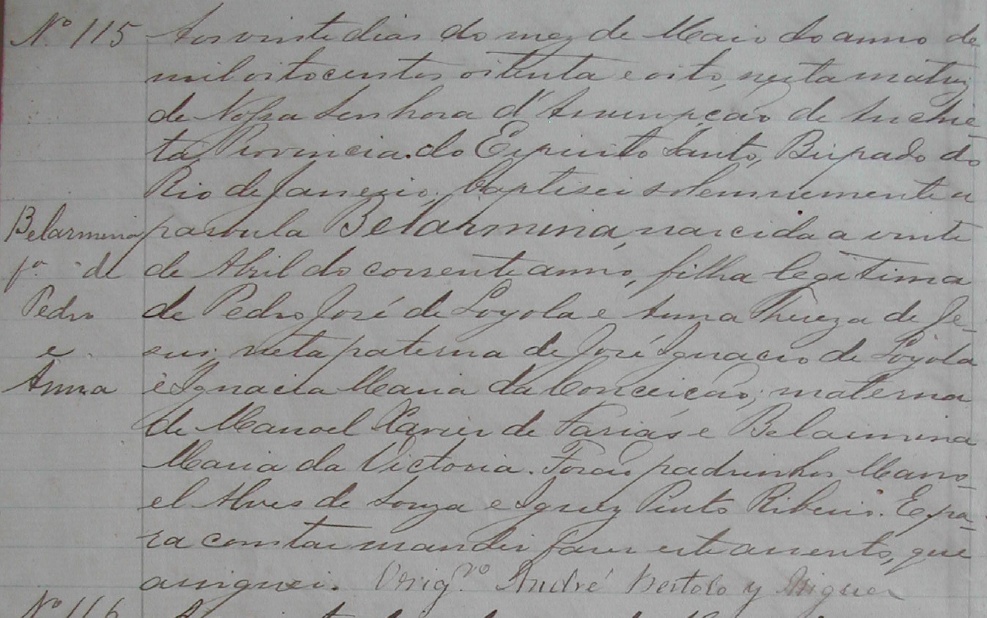 Nº 115 Aos vinte dias do mez de Maio do anno de
mil oitocentos oitenta e oito, nesta matriz
de Nossa Senhora d'Assumpção de Anchie-
ta, Provincia do Espirito Santo, Bispado do
Rio de Janeiro, baptisei solemnemente a
Belarmina parvula Belarmina, nascida a vinte
fª de de Abril do corrente anno, filha legitima
Pedro de Pedro José de Loyola e Anna Thereza de Je-
e sus, neta paterna de José Ignacio de Loyola
Anna e Ignacia Maria da Conceição; materna
de Manoel Xavier de Farias e Belarmina
Maria da Victoria. Forão padrinhos Mano-
el Alves de Souza e Ignez Pinto Ribeiro. E pa-
ra constar mandei fazer este assento, que
assignei. Vigrº André
Nº 116